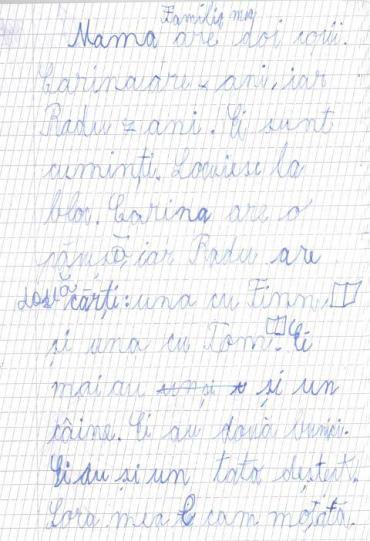 Familia mea
Mama are doi copii.
Carina are x ani, iar
Radu 7 ani. Ei sunt
cuminți. Locuiesc la
bloc. Carina are o
păpușă, iar Radu are
două cărți: una cu Finn
și una cu Tom. Ei
mai au și un
câine. Ei au două bunici.
Ei au și un tata deștept.
Sora mea e cam moțată.